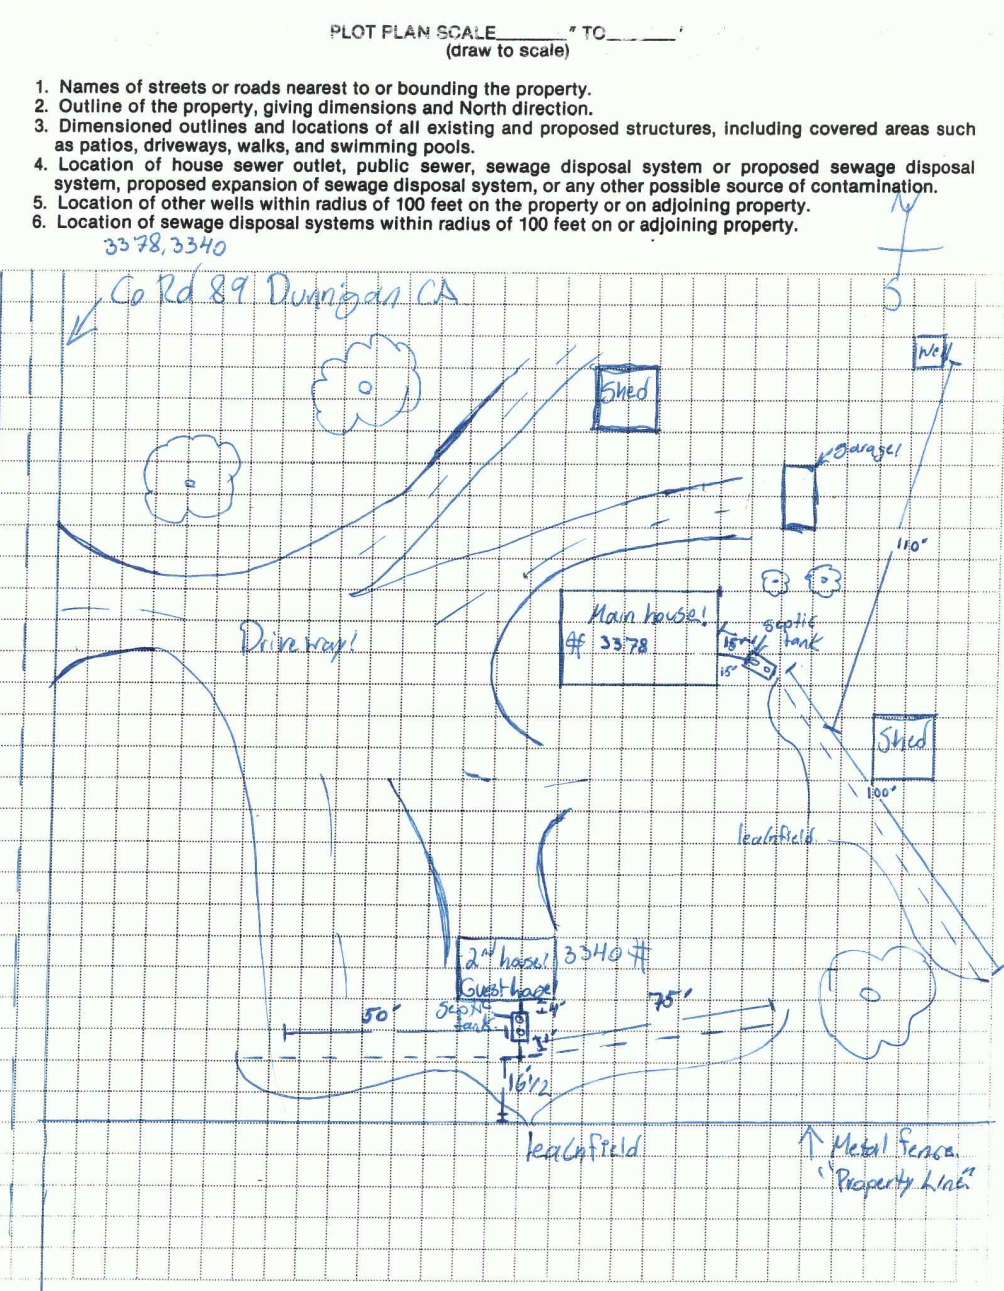 PLOT PLAN SCALE_______" TO______'
(draw to scale)
1. Names of streets or roads nearest to or bounding the property.
2. Outline of the property, giving dimensions and North direction.
3. Dimensioned outlines and locations of all existing and proposed structures, including covered areas such
as patios, driveways, walks, and swimming pools.
4. Location of house sewer outlet, public sewer, sewage disposal system or proposed sewage disposal
system, proposed expansion of sewage disposal system, or any other possible source of contamination.
5. Location of other wells within radius of 100 feet on the property or on adjoining property.
6. Location of sewage disposal systems within radius of 100 feet on or adjoining property.
N
3378, 3340
Co Rd 89 Dunnigan CA
S
Well
Shed
garage!
110'
Main house!
# 3378
septic
tank
15'
15'
Driveway!
Shed
100'
leachfield
2nd house!
3340 #
Guest house
septic
tank
4'
50'
75'
16 1/2
leachfield
Metal fence
"Property Line"